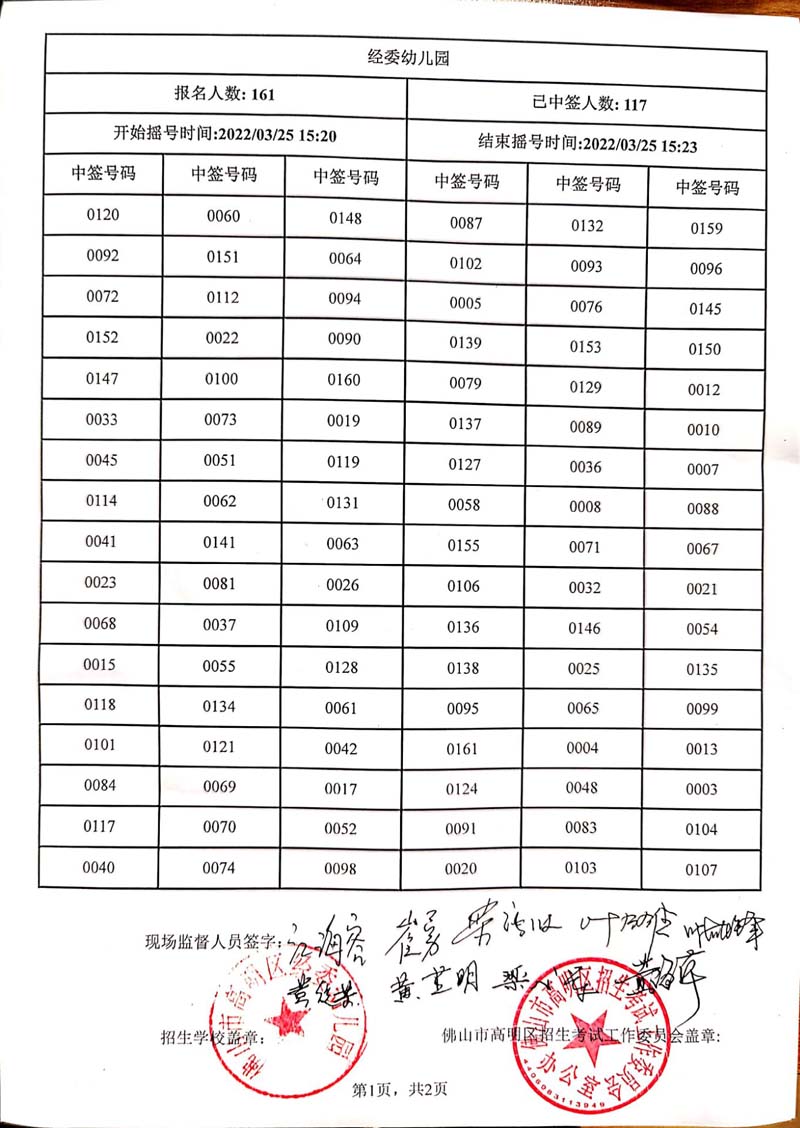 经委幼儿园
报名人数: 161 已中签人数: 117
开始摇号时间:2022/03/25 15:20 结束摇号时间:2022/03/25 15:23
中签号码 中签号码 中签号码 中签号码 中签号码 中签号码
0120 0060 0148 0087 0132 0159
0092 0151 0064 0102 0093 0096
0072 0112 0094 0005 0076 0145
0152 0022 0090 0139 0153 0150
0147 0100 0160 0079 0129 0012
0033 0073 0019 0137 0089 0010
0045 0051 0119 0127 0036 0007
0114 0062 0131 0058 0008 0088
0041 0141 0063 0155 0071 0067
0023 0081 0026 0106 0032 0021
0068 0037 0109 0136 0146 0054
0015 0055 0128 0138 0025 0135
0118 0134 0061 0095 0065 0099
0101 0121 0042 0161 0004 0013
0084 0069 0017 0124 0048 0003
0117 0070 0052 0091 0083 0104
0040 0074 0098 0020 0103 0107
现场监督人员签字:
招生学校盖章: 佛山市高明区招生考试工作委员会盖章:
佛山市高明区经委幼儿园
佛山市高明区招生考试工作委员会
办公室
4406083113949
第1页，共2页